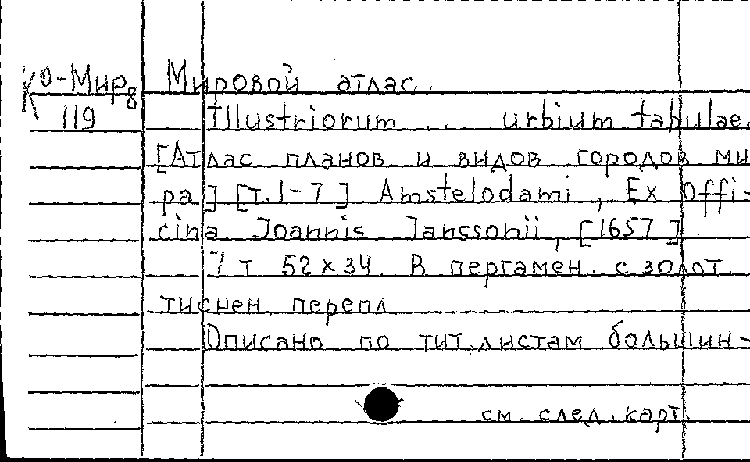 Ко-Мир8 Мировой атлас.
119 Illustriorum ... urbium tabulae.
[Атлас планов и видов городов ми
ра] [т.1-7] Amstelodami, Ex offi-
cina Joannis Janssonii, [1657]
7 т 52х34. В пергамен. с золот
тиснен. перепл
Описано по тит.листам большин-
см. след. карт.